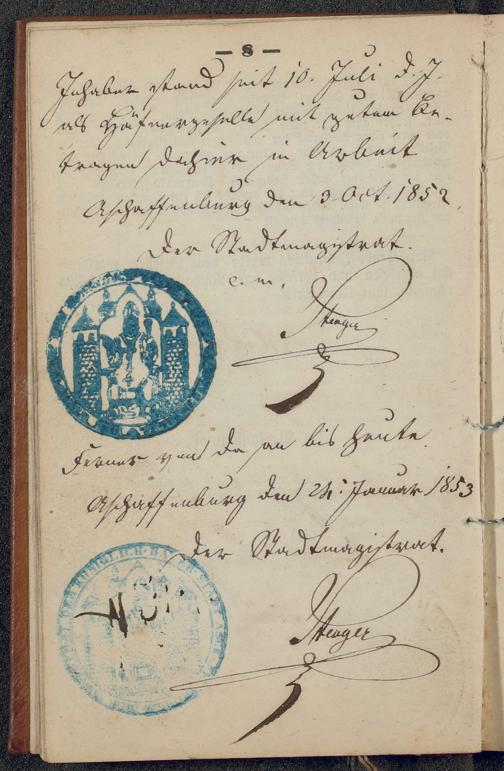 — 8 —
Inhaber stand seit 10. Juli d. J.
als Häfnergeselle mit gutem Be-
tragen dahier in Arbeit
Aschaffenburg den 3 Oct. 1852.
Der Stadtmagistrat.
Stenger
Ferner von da an bis heute
Aschaffenburg den 24: Januar 1853
Der Stadtmagistrat.
Stenger